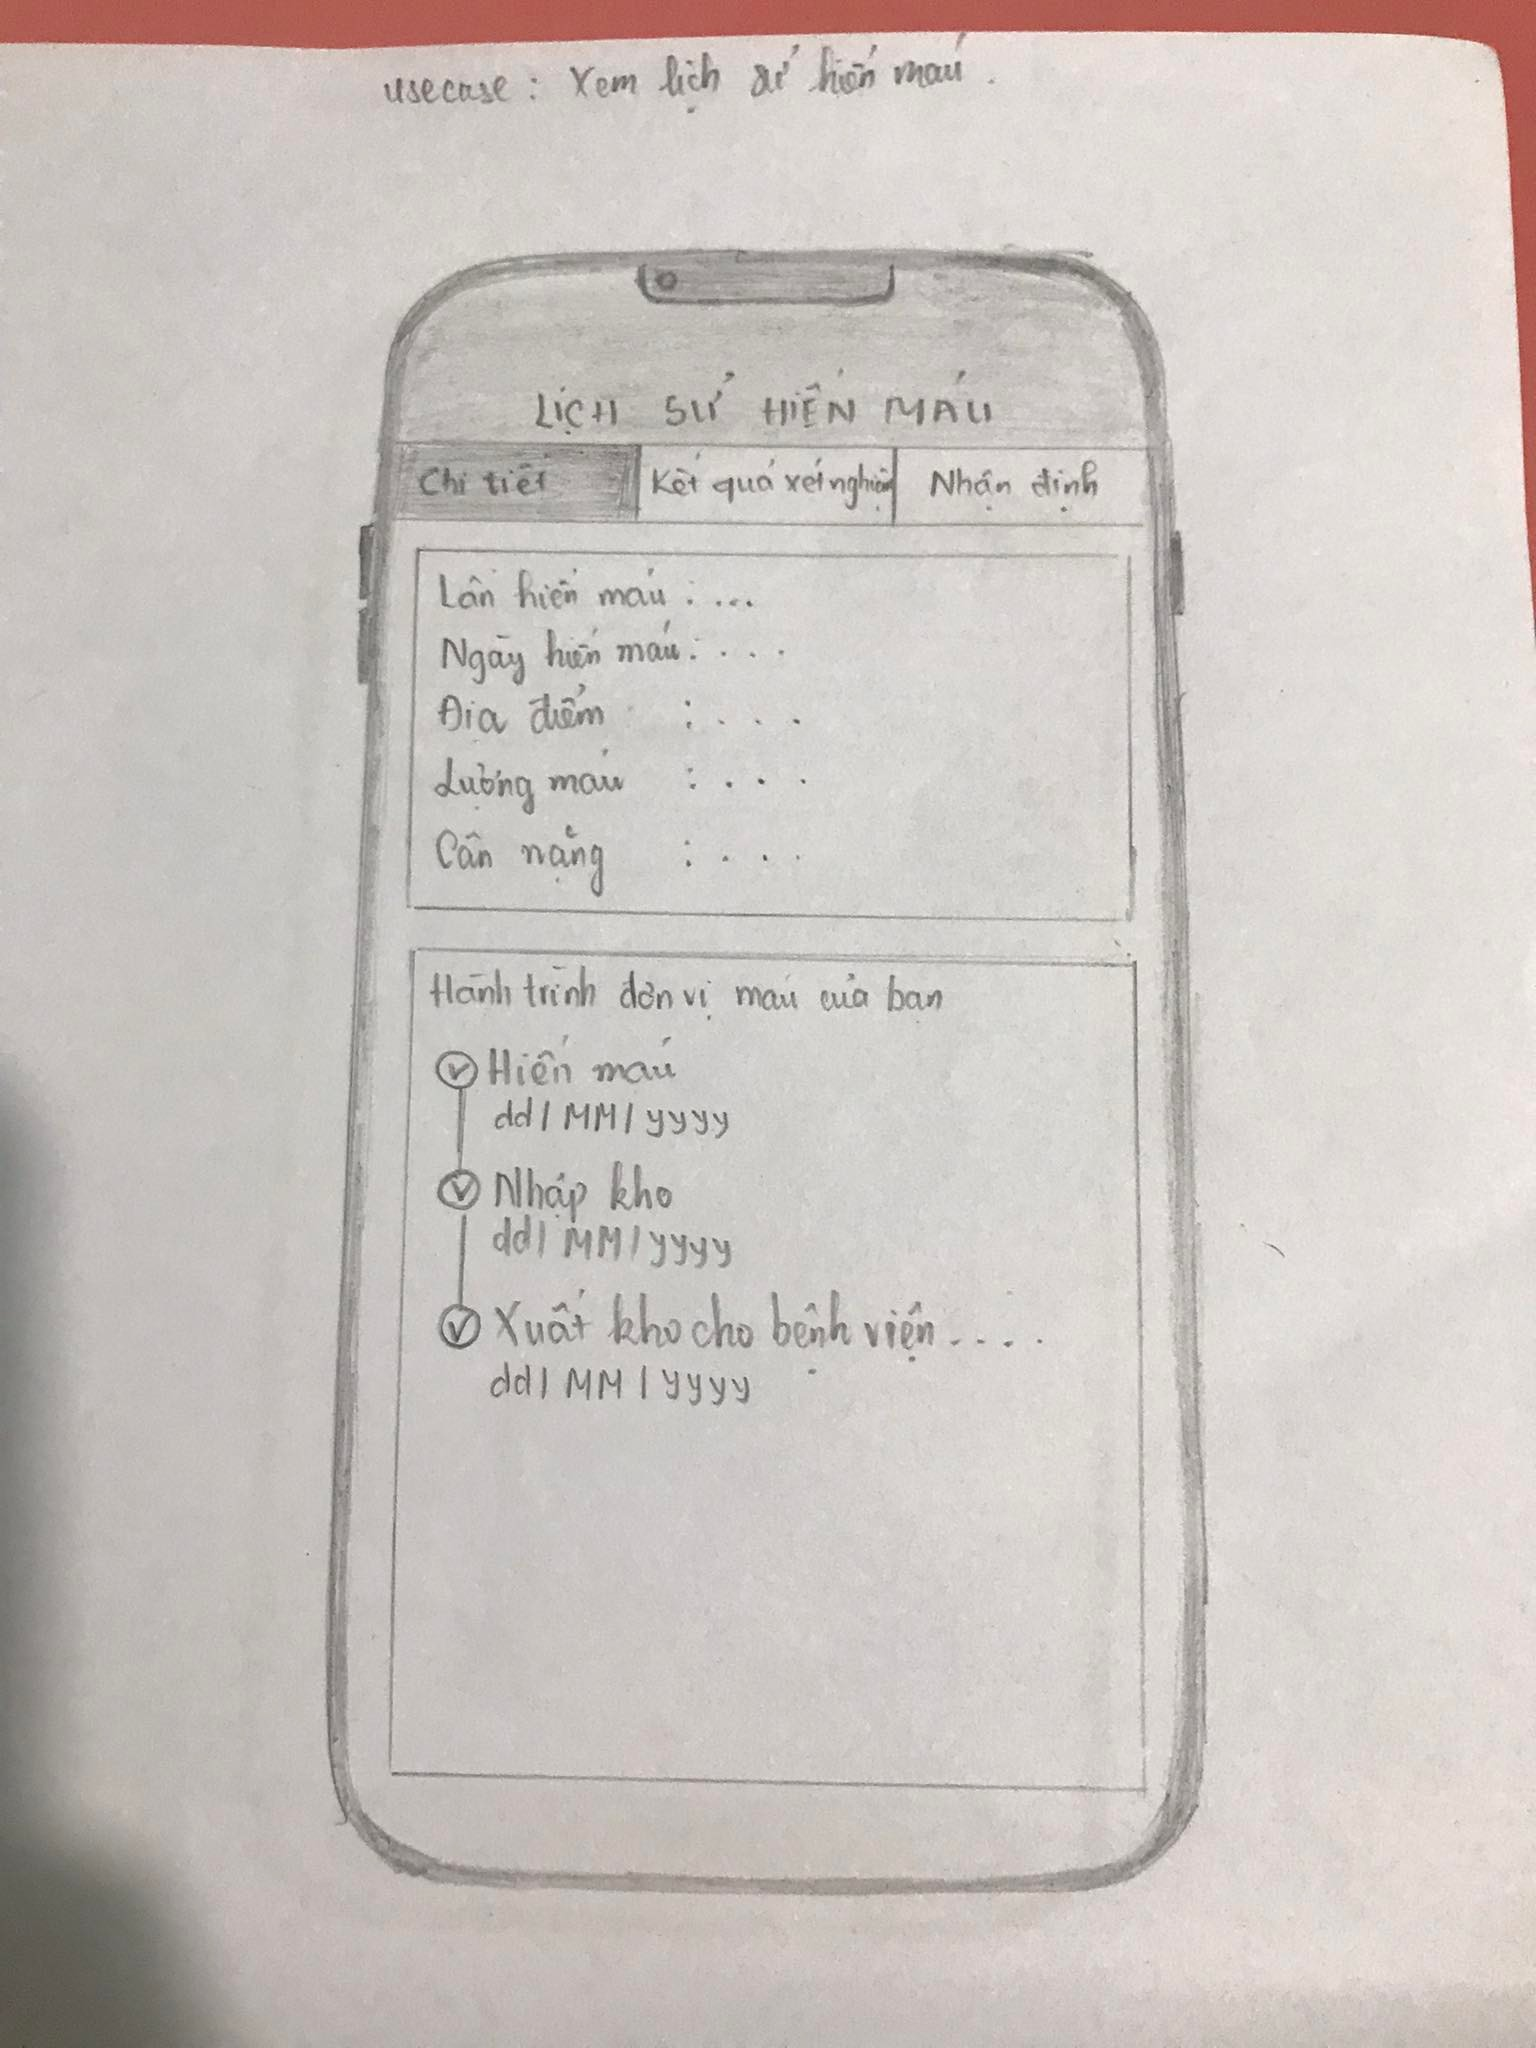 usecase: Xem lịch sử hiến máu.
LỊCH SỬ HIẾN MÁU
Chi tiết
Kết quả xét nghiệm
Nhận định
Lần hiến máu : ...
Ngày hiến máu: . . .
Địa điểm : . . .
Lượng máu : . . .
Cân nặng : . . .
Hành trình đơn vị máu của bạn
Hiến máu
dd/MM/yyyy
Nhập kho
dd/MM/yyyy
Xuất kho cho bệnh viện ....
dd/MM/yyyy